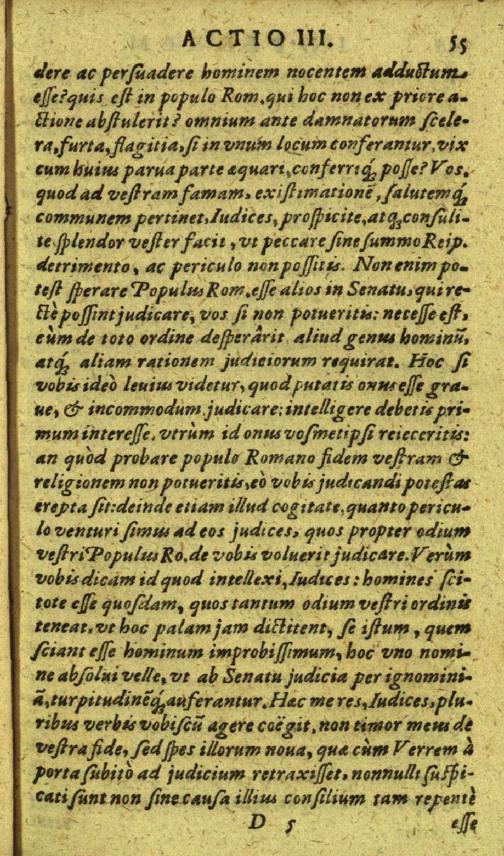 ACTIO III. 55
dere ac persuadere hominem nocentem adductum
esse? quis est in populo Rom. qui hoc non ex priore a-
ctione abstulerit? omnium ante damnatorum scele-
ra, furta, flagitia, si in vnum locum conferantur, vix
cum huius parua parte æquari, conferriq́; posse? Vos,
quod ad vestram famam, existimationẽ, salutemq́;
communem pertinet, Iudices, prospicite, atq́; consuli-
te. splendor vester facit, vt peccare sine summo Reip.
detrimento, ac periculo non possitis. Non enim po-
test sperare Populus Rom. esse alios in Senatu, qui re-
ctè possint judicare, vos si non potueritis: necesse est,
cùm de toto ordine desperârit aliud genus hominũ,
atq́; aliam rationem judiciorum requirat. Hoc si
vobis ideò leuius videtur, quod putatis onus esse gra-
ue, & incommodum judicare: intelligere debetis pri-
mum interesse, vtrùm id onus vosmetipsi reieceritis:
an quòd probare populo Romano fidem vestram &
religionem non potueritis, eò vobis judicandi potestas
erepta sit: deinde etiam illud cogitate, quanto pericu-
lo venturi simus ad eos judices, quos propter odium
vestri Populus Ro. de vobis voluerit judicare. Verùm
vobis dicam id quod intellexi, Iudices: homines sci-
tote esse quosdam, quos tantum odium vestri ordinis
teneat, vt hoc palam jam dictitent, se istum, quem
sciant esse hominum improbissimum, hoc vno nomi-
ne absolui velle, vt ab Senatu judicia per ignomini-
ã, turpitudinẽq́; auferantur. Hæc me res, Iudices, plu-
ribus verbis vobiscũ agere coëgit, non timor meus de
vestra fide, sed spes illorum noua, quæ cùm Verrem à
porta subitò ad judicium retraxisset, nonnulli suspi-
cati sunt non sine causa illius consilium tam repentè
D 5 esse